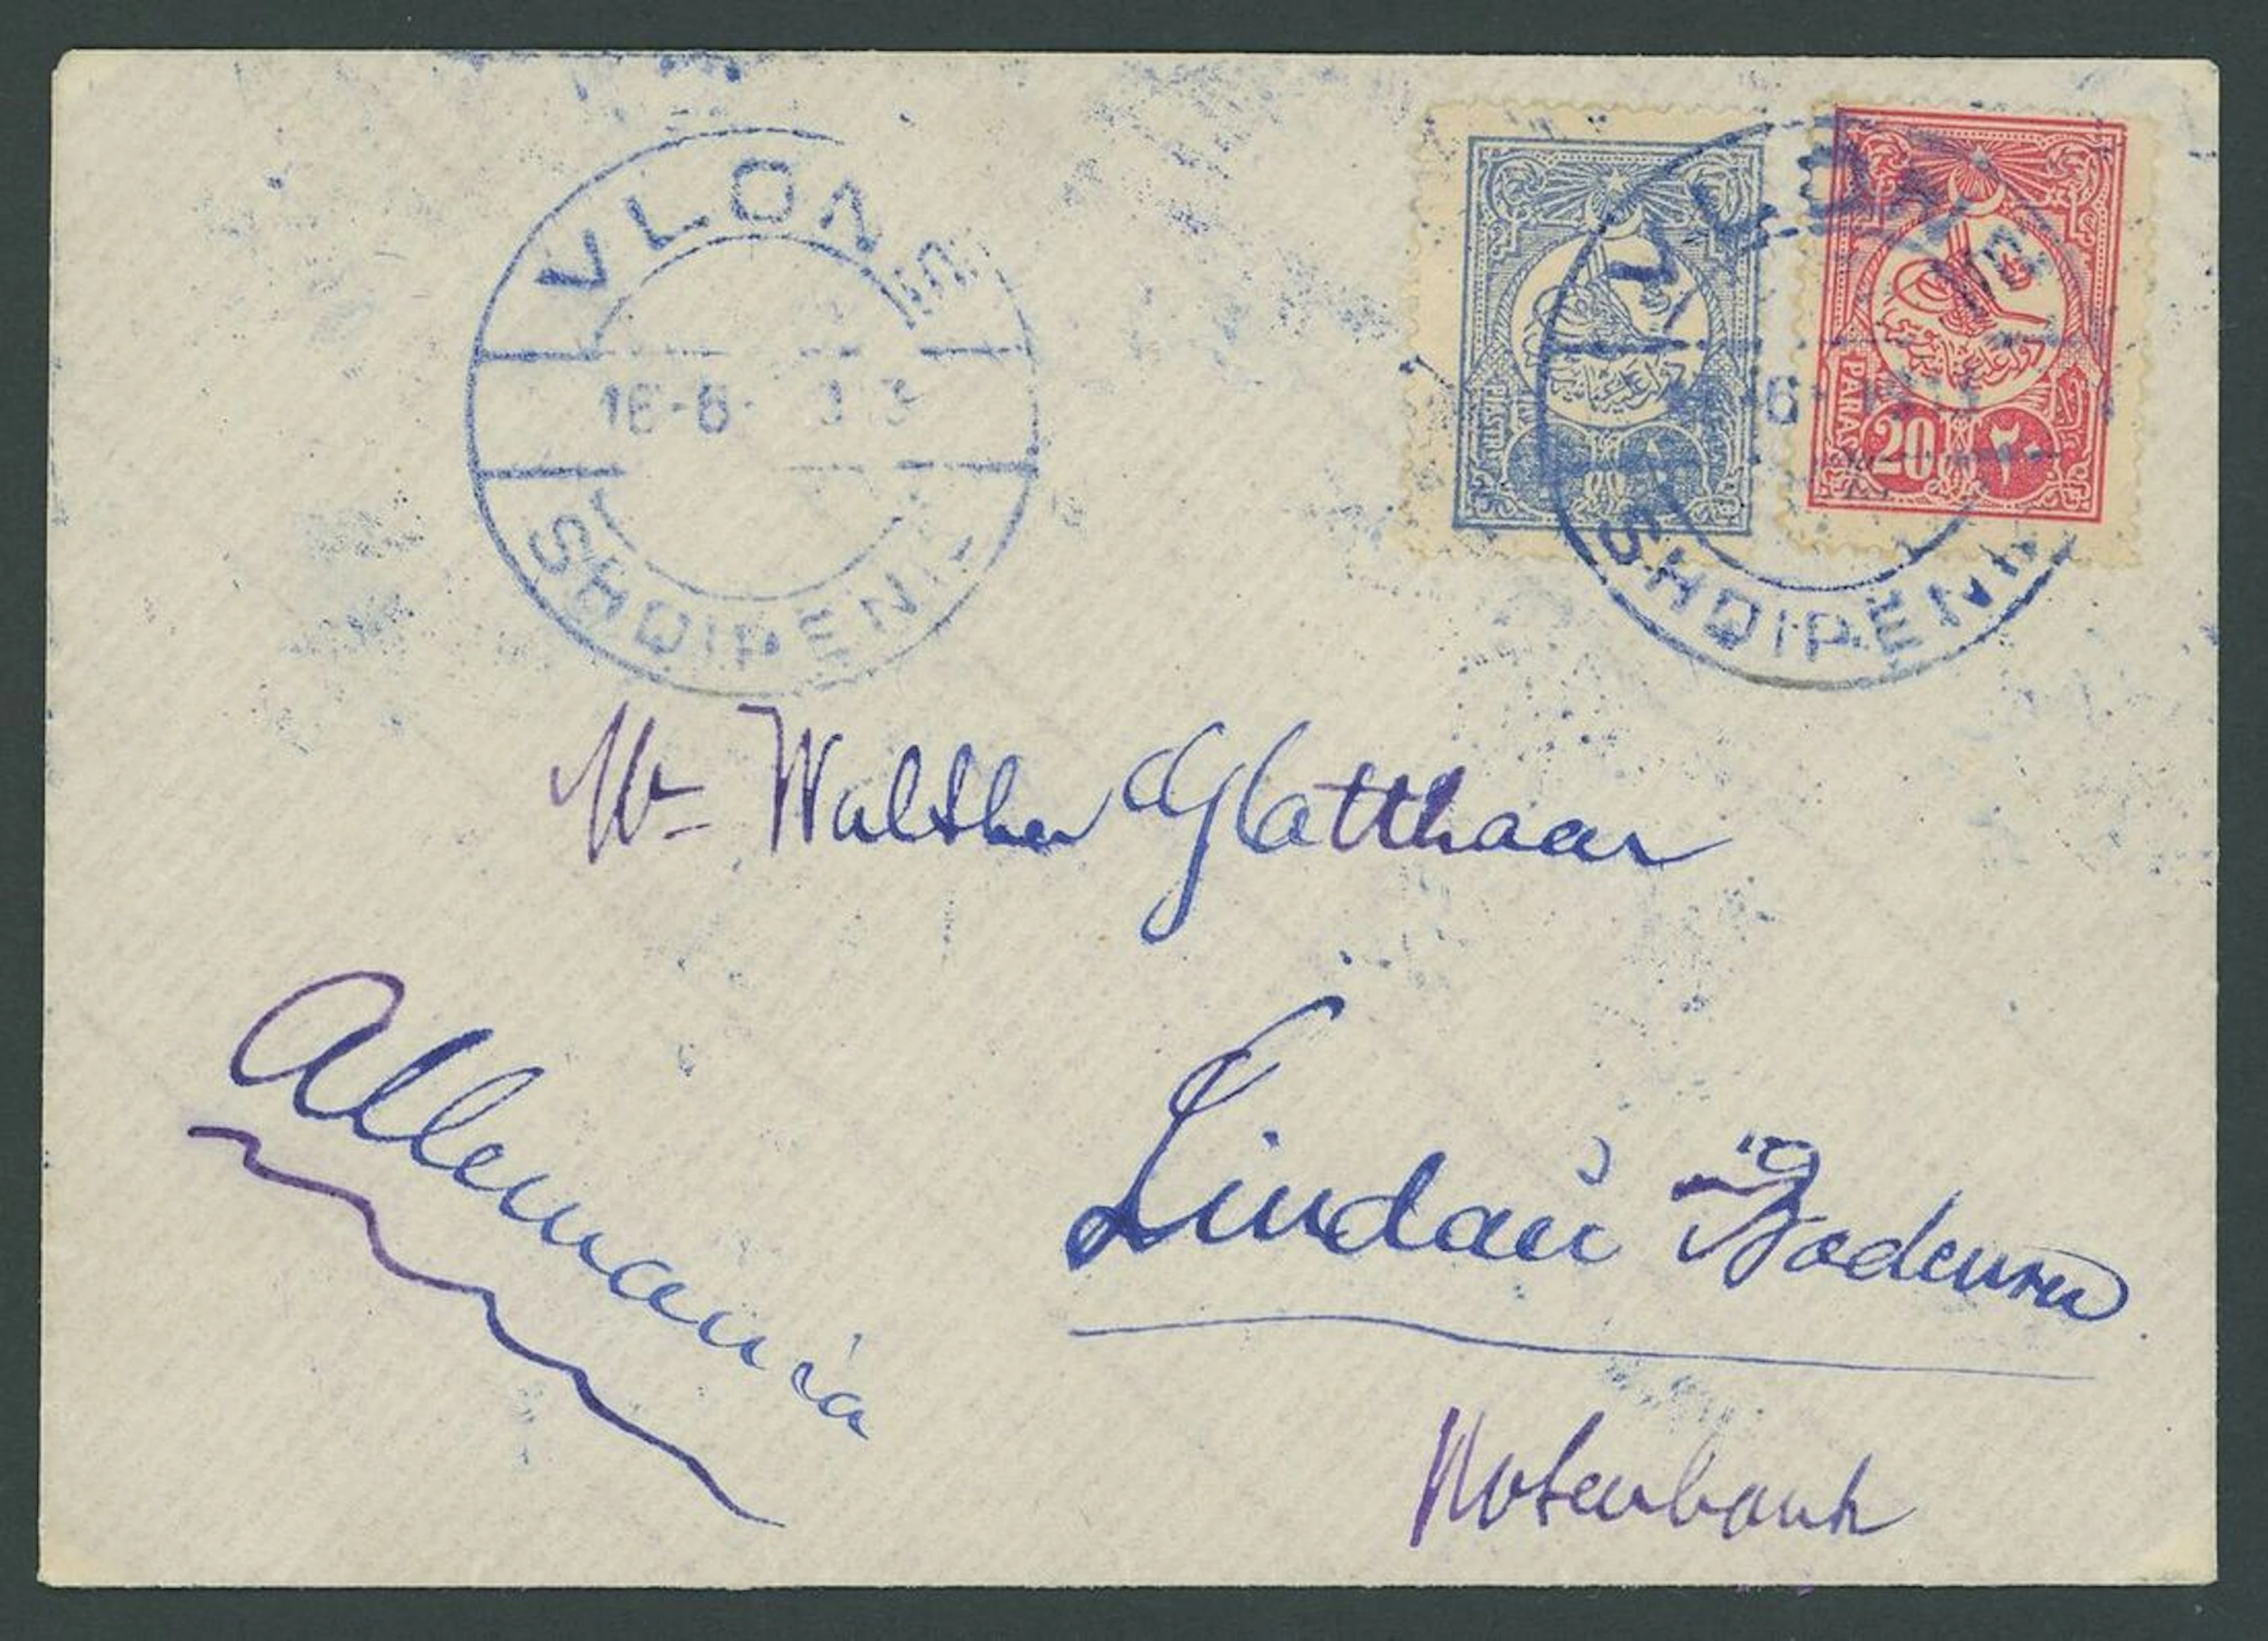 VLONË
16-6-
SHQIPENIË
VLONË
6
SHQIPENI
PIASTRE
PARAS
20 ٢٠
Mr Walther Glatthaar
Allemania
Lindau i Bodensee
Notenbank